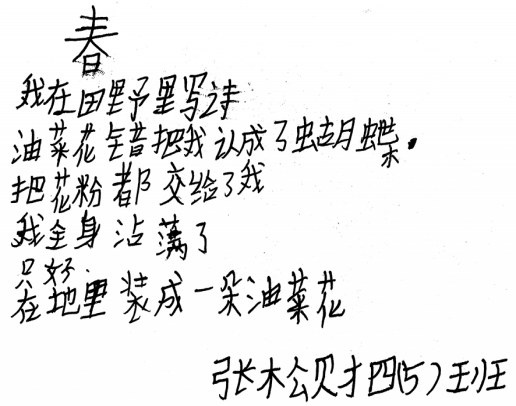 春
我在田野里写诗
油菜花错把我认成了蝴蝶.
把花粉都交给了我
我全身沾满了
只好
在地里装成一朵油菜花
张松财四(5)班